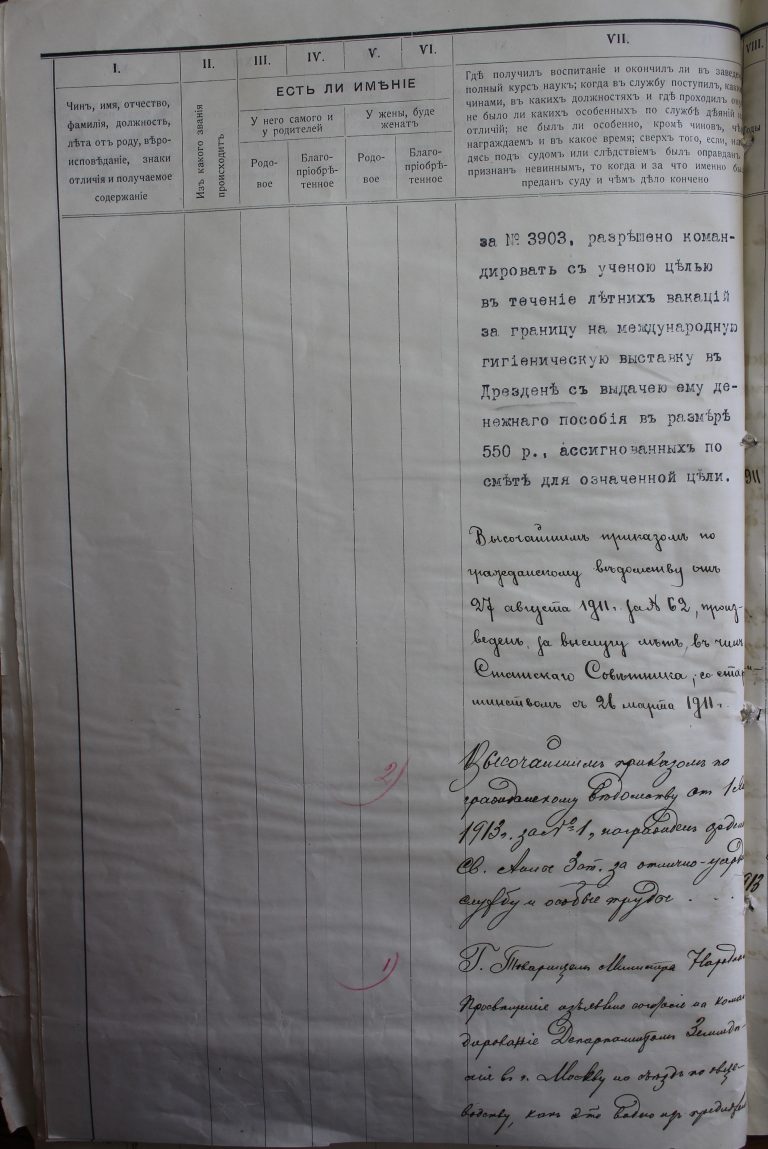 I.
II.
III.
IV.
V.
VI.
VII.
VIII.
Чинъ, имя, отчество,
фамилія, должность,
лѣта отъ роду, вѣро-
исповѣданіе, знаки
отличія и получаемое
содержаніе
Изъ какого званія
происходитъ
ЕСТЬ ЛИ ИМѢНІЕ
У него самого и
у родителей
У жены, буде
женатъ
Родо-
вое
Благо-
пріобрѣ-
тенное
Родо-
вое
Благо-
пріобрѣ-
тенное
Гдѣ получилъ воспитаніе и окончилъ ли въ заведе
полный курсъ наукъ; когда въ службу поступилъ, как
чинами, въ какихъ должностяхъ и гдѣ проходилъ о
не было ли какихъ особенныхъ по службѣ дѣяній
отличій; не былъ ли особенно, кромѣ чиновъ, чѣ
награждаемъ и въ какое время; сверхъ того, если, на
дясь подъ судомъ или слѣдствіемъ былъ оправданъ
признанъ невиннымъ, то когда и за что именно бы
преданъ суду и чѣмъ дѣло кончено
за № 3903, разрѣшено коман-
дировать съ ученою цѣлью
въ теченіе лѣтнихъ вакацій
за границу на международную
гигіеническую выставку въ
Дрезденѣ съ выдачею ему де-
нежнаго пособія въ размѣрѣ
550 р., ассигнованныхъ по
смѣтѣ для означенной цѣли.
911
Высочайшимъ приказомъ по
гражданскому вѣдомству отъ
27 августа 1911 г. за № 62, произ-
веденъ, за выслугу лѣтъ, въ чинъ
Статскаго Совѣтника, со стар-
шинствомъ съ 26 марта 1911 г.
2)
Высочайшимъ приказомъ по
гражданскому вѣдомству от 1
1913 г. за № 1, награжденъ орден
Св. Анны 3 ст. за отлично-усерд
службу и особые труды . . .
913
1)
Г. Товарищемъ Министра Народн
Просвѣщенія изъявлено согласіе на коман
дированіе Департаментомъ Земледѣ-
лія въ г. Москву на съѣздъ по овце-
водству, какъ это видно изъ предложен